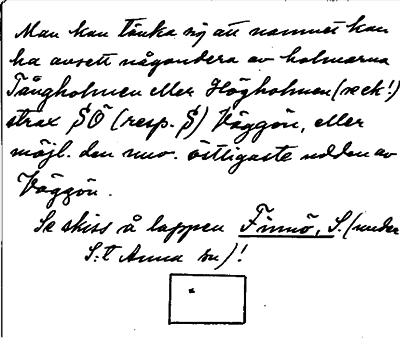 Man kan tänka sig att namnet kan
ha avsett någondera av holmarna
Tångholmen eller Högholmen (se ek.!)
strax SO (resp. S) Väggön, eller
möjl. den nuv. östligaste udden av
Väggön.
Se skiss å lappen Finnö, S. (under
S:t Anna sn)!